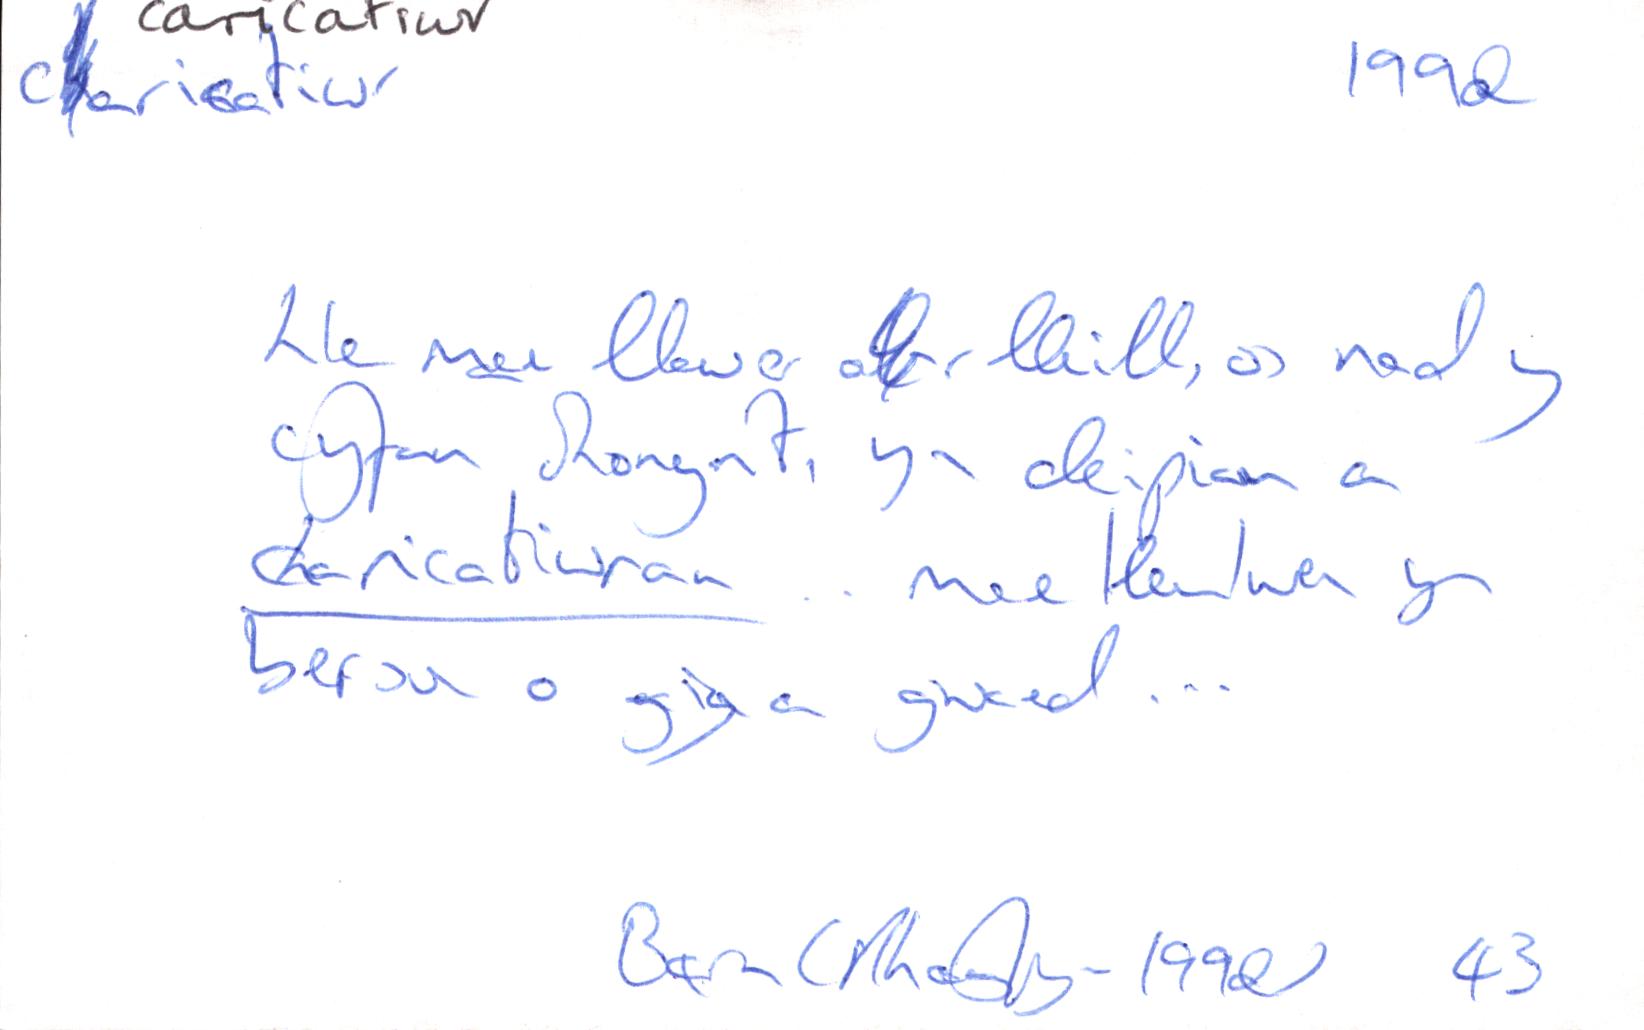 caricatiwr
caricatiwr 1992
Lle mae llawer o'r lleill, os nad y
cyfan ohonynt, yn cleipian a
charicatiwrau .. mae yn
berson o gig a gwaed ...
Barn (Rhag/Ion - 1992) 43